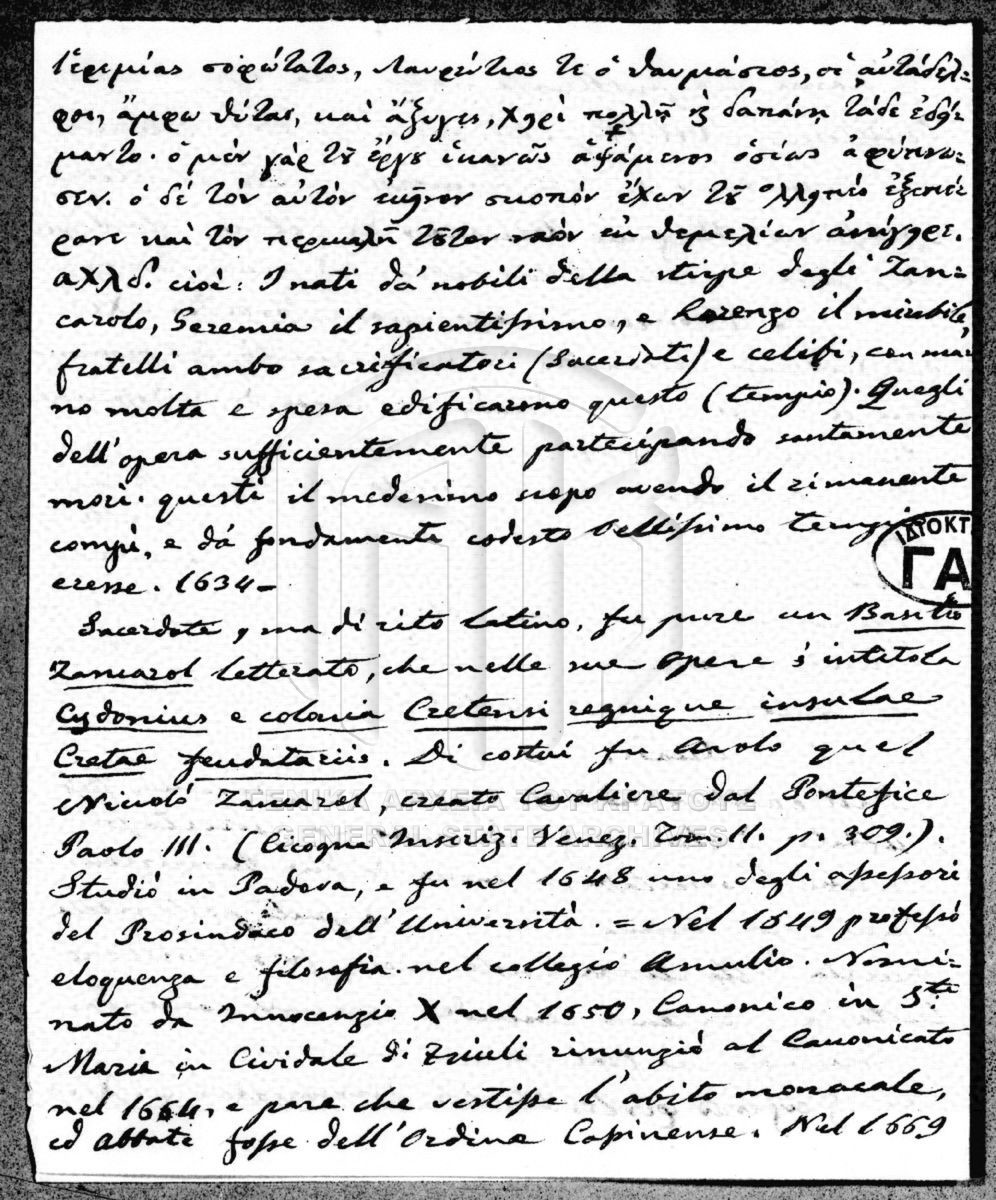 Ἱερεμίας σοφώτατος, Λαυρέντιος τε ὁ θαυμάσιος, οἱ αὐτάδελ=
φοι, ἄμφω θύται, καὶ ἄζυγες, χερὶ πολλῇ ϗ δαπάνῃ τάδε ἐδεί=
μαντο. ὁ μὲν γὰρ τȣ͂ ἔργȣ ἱκανῶς ἁψάμενος ὁσίως ἀφύπνω=
σεν. ὁ δὲ τὸν αὐτὸν ἐκεῖνον σκοπὸν ἔχων τȣ͂ ἐξεπέ=
ρανε καὶ τὸν περικαλῆ τȣ͂τον ναὸν ἐκ θεμελίων ἀνήγειρε.
αχλδ. cioè: I nati dà nobili della stirpe degli Zan=
carolo, Geremia il sapientissimo, e Lorenzo il mirabile,
fratelli ambo sacrificatori (Sacerdoti) e celibi, con ma=
no molta e spesa edificarono questo (tempio). Quegli
dell'opera sufficientemente partecipando santamente
morì. questi il medesimo scopo avendo il rimanente
compì, e dà fondamenti codesto bellissimo tempio
eresse. 1634 –
Sacerdote, ma di rito latino, fu pure un Basilio
Zancarol letterato, che nelle sue Opere s'intitola
Cydonius e colonia Cretensi regnique insulae
Cretae feudatariis. Di costui fu Avolo quel
Nicolò Zancarol, creato Cavaliere dal Pontefice
Paolo III. (Cicogna Inscriz. Venez. Tom. II. p. 309.).
Studiò in Padova, e fu nel 1648 uno degli assessori
del Prosindaco dell'Università. = Nel 1649 professò
eloquenza e filosofia nel collegio Amulio. Nomi=
nato da Innocenzio X nel 1650, Canonico in S.ta
Maria in Cividale di Friuli rinunziò al Canonicato
nel 1664, e pare che vestisse l'abito monacale,
ed abbate fosse dell'Ordine Casinense. Nel 1669
ΙΔΙΟΚΤ
ΓΑ
ΓΕΝΙΚΑ ΑΡΧΕΙΑ ΤΟΥ ΚΡΑΤΟΥΣ
GENERAL STATE ARCHIVES